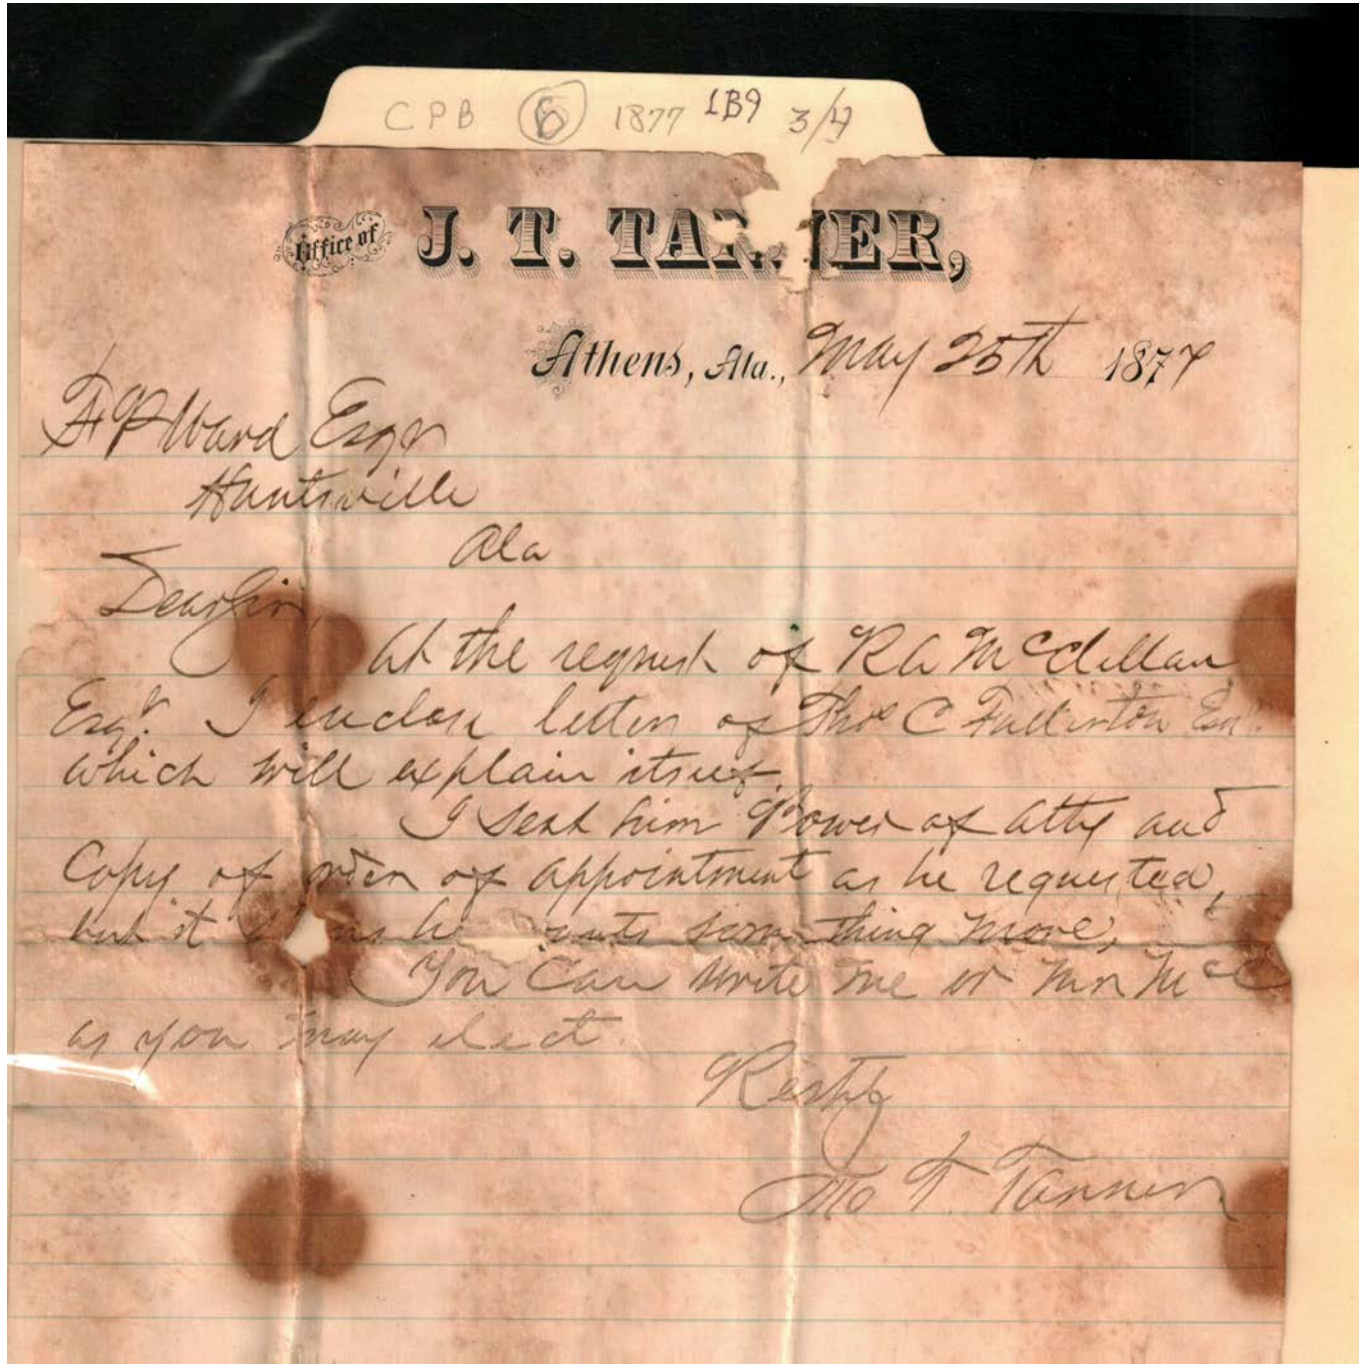 CPB 6 1877 LB9 3/4
Office of J. T. TANNER,
Athens, Ala., May 25th 1877
Ward Esqr
Huntsville
Ala
Dear Sir,
At the request of R A McClellan
Esqr. I enclose letter of Thos C Fullerton Esqr.
which will explain itself.
I sent him Power of atty and
Copy of order of appointment as he requested,
but it he wants some thing more,
You Can write me or Mr McC
as you may elect.
Resty
Jno T. Tanner